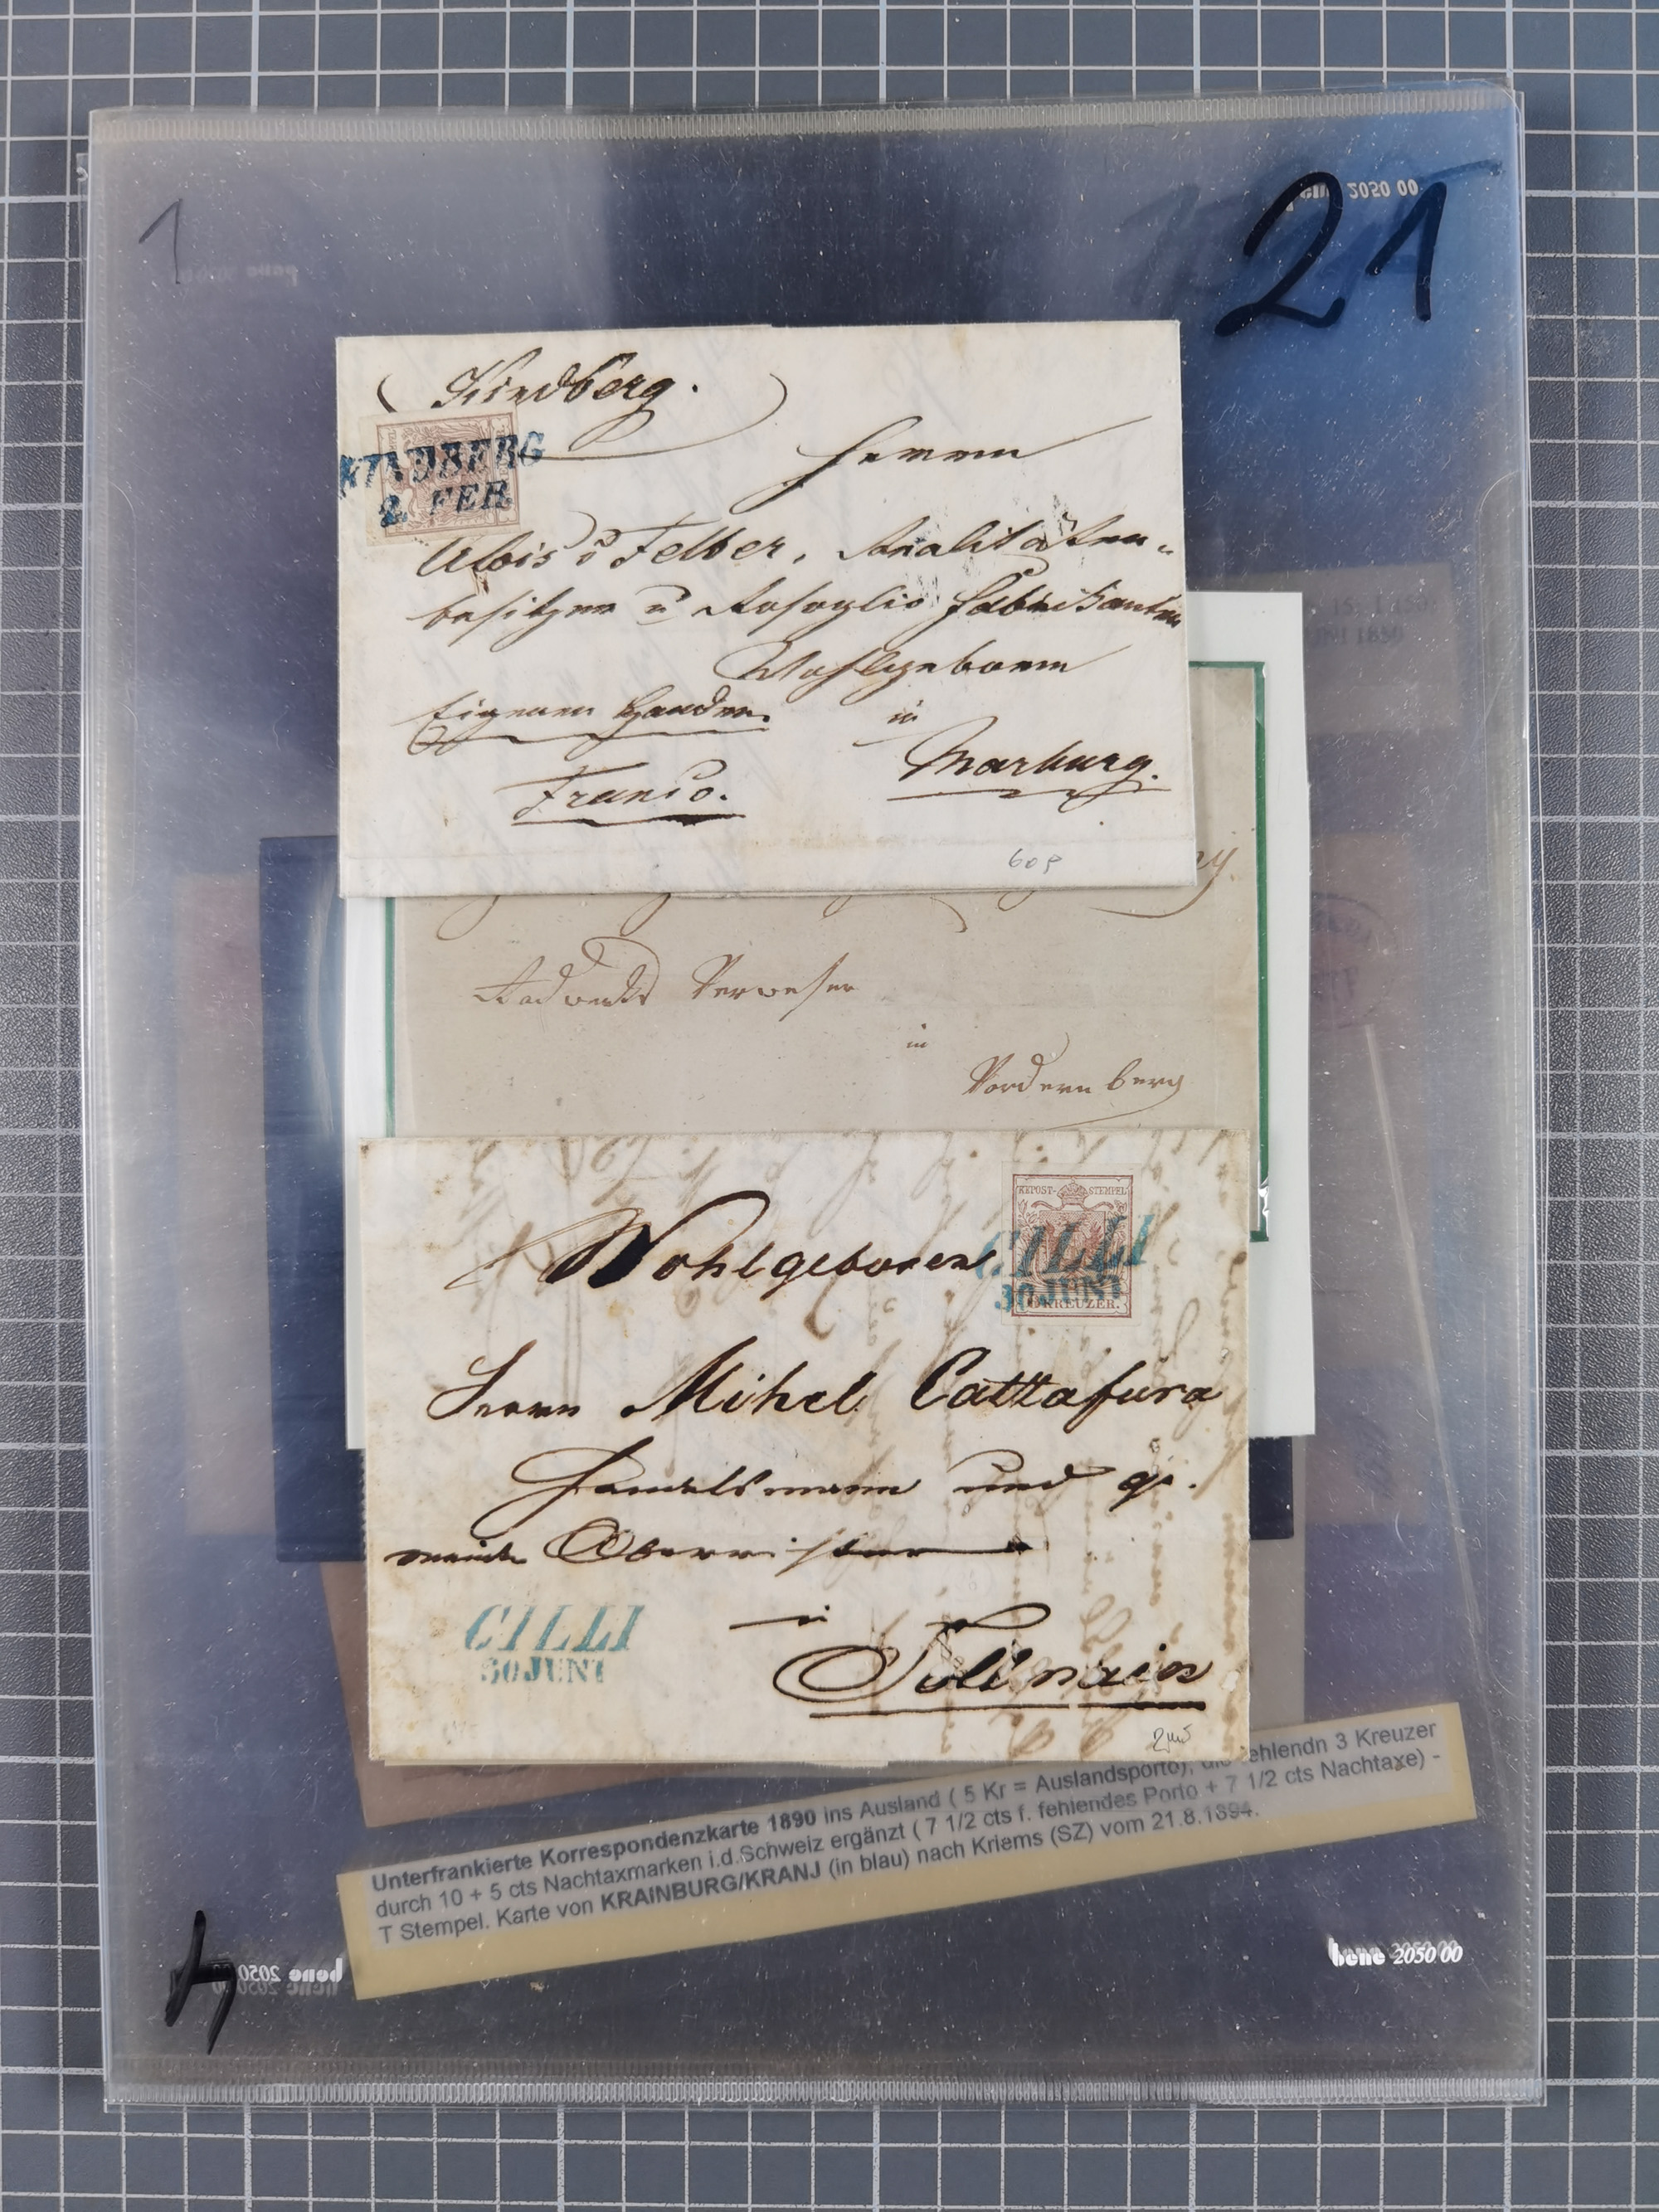 1
21
2050 00
Kindberg.
KINDBERG
2. FEB.
Herrn
Alois v Felber, Realitäten-
besitzer u Rosoglio Fabrikanten
Wohlgeboren
Eigenen Handen.
in
Marburg.
Franco.
60 P
Radwerks Verweser
in
Vordernberg
KKPOST-STEMPEL
KREUZER.
CILLI
30 JUNI
Wohlgeboren
Herrn Mihel Cattafura
Handelsmann und ge.
meinde Oberrichter
in
Tollmein
CILLI
30 JUNI
Unterfrankierte Korrespondenzkarte 1890 ins Ausland ( 5 Kr = Auslandsporto), die fehlendn 3 Kreuzer
durch 10 + 5 cts Nachtaxmarken i.d.Schweiz ergänzt ( 7 1/2 cts f. fehlendes Porto + 7 1/2 cts Nachtaxe) -
T Stempel. Karte von KRAINBURG/KRANJ (in blau) nach Kriems (SZ) vom 21.8.1894.
4
bene 2050
bene 2050 00